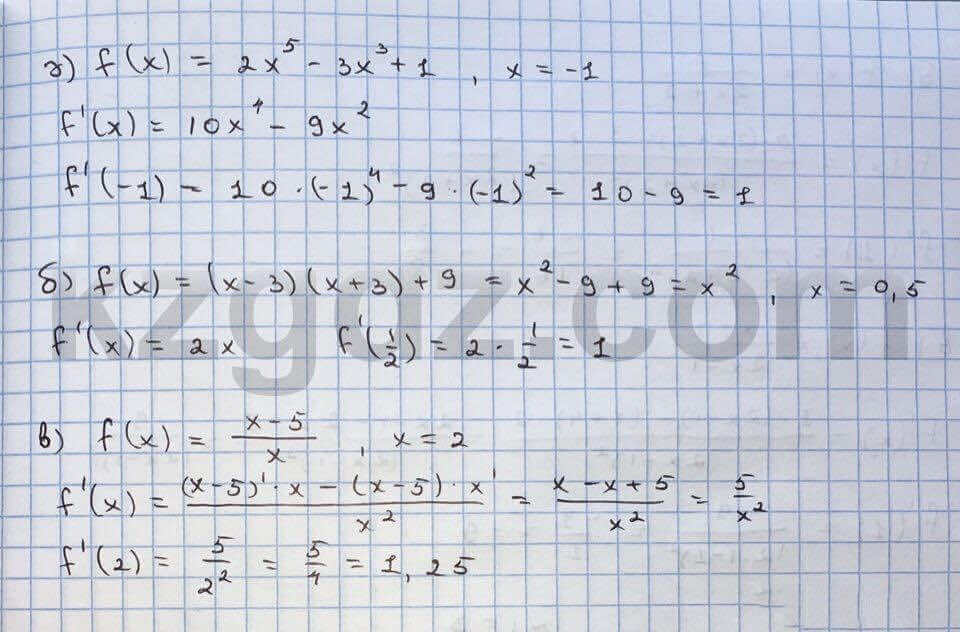 а) f(x) = 2x⁵ - 3x³ + 1 , x = -1
f'(x) = 10x⁴ - 9x²
f'(-1) - 10 · (-1)⁴ - 9 · (-1)² = 10 - 9 = 1
б) f(x) = (x-3)(x+3) + 9 = x² - 9 + 9 = x² , x = 0,5
f'(x) = 2x f'(1/2) = 2 · 1/2 = 1
в) f(x) = (x-5)/x , x = 2
f'(x) = ((x-5)' · x - (x-5) · x')/x² = (x - x + 5)/x² = 5/x²
f'(2) = 5/2² = 5/4 = 1,25
kzgdz.com